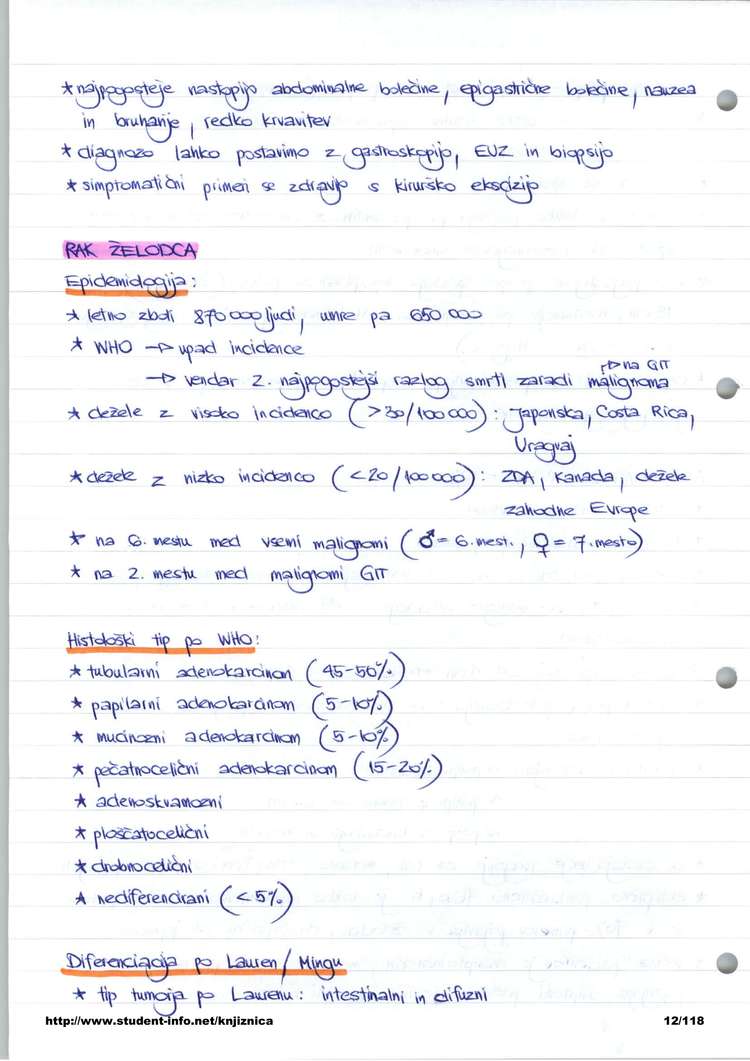 * najpogosteje nastopijo abdominalne bolečine, epigastrične bolečine, nauzea
in bruhanje, redko krvavitev
* diagnozo lahko postavimo z gastroskopijo, EUZ in biopsijo
* simptomatični primeri se zdravijo s kirurško ekscizijo
RAK ŽELODCA
Epidemiologija:
* letno zboli 870 000 ljudi, umre pa 650 000
* WHO → upad incidence
↱ na GIT
→ vendar 2. najpogostejši razlog smrti zaradi malignoma
* dežele z visoko incidenco (>30/100 000): Japonska, Costa Rica,
Urugvaj
* dežele z nizko incidenco (<20/100 000): ZDA, Kanada, dežele
zahodne Evrope
* na 6. mestu med vsemi malignomi (♂ = 6. mest., ♀ = 7. mesto)
* na 2. mestu med malignomi GIT
Histološki tip po WHO:
* tubularni adenokarcinom (45-50%)
* papilarni adenokarcinom (5-10%)
* mucinozni adenokarcinom (5-10%)
* pečatnocelični adenokarcinom (15-20%)
* adenoskvamozni
* ploščatocelični
* drobnocelični
* nediferencirani (<5%)
Diferenciacija po Lauren / Mingu
* tip tumorja po Laurenu: intestinalni in difuzni
http://www.student-info.net/knjiznica 12/118